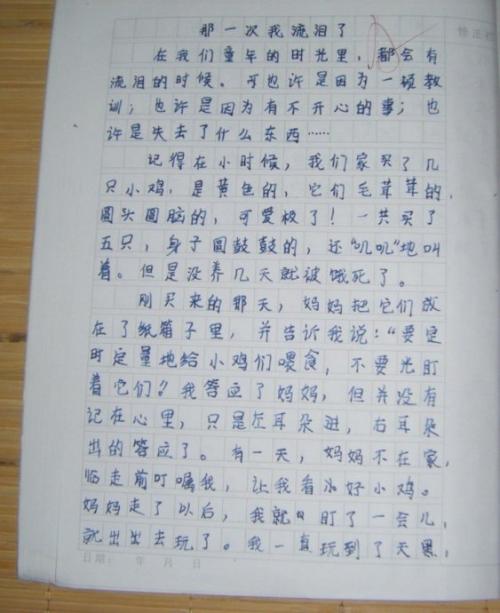 那一次我流泪了
在我们童年的时光里，都会有
流泪的时候。可也许是因为一顿教
训；也许是因为有不开心的事；也
许是失去了什么东西……
记得在小时候，我们家买了几
只小鸡，是黄色的，它们毛茸茸的，
圆头圆脑的，可爱极了！一共买了
五只，身子圆鼓鼓的，还"叽叽"地叫
着。但是没养几天就被饿死了。
刚买来的那天，妈妈把它们放
在了纸箱子里，并告诉我说："要定
时定量地给小鸡们喂食，不要光盯
着它们？我答应了妈妈，但并没有
记在心里，只是左耳朵进，右耳朵
出的答应了。有一天，妈妈不在家，
临走前叮嘱我，让我看好小鸡。
妈妈走了以后，我就盯了一会儿，
就出出去玩了。我一直玩到了天黑，
日期： 年 月 日